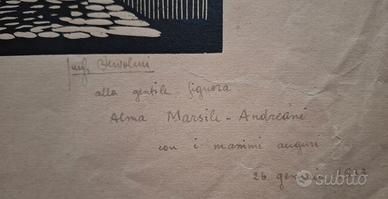 Luigi Bartolini
alla gentile Signora
Alma Marsili - Andreani
con i massimi auguri
26 genn
subito